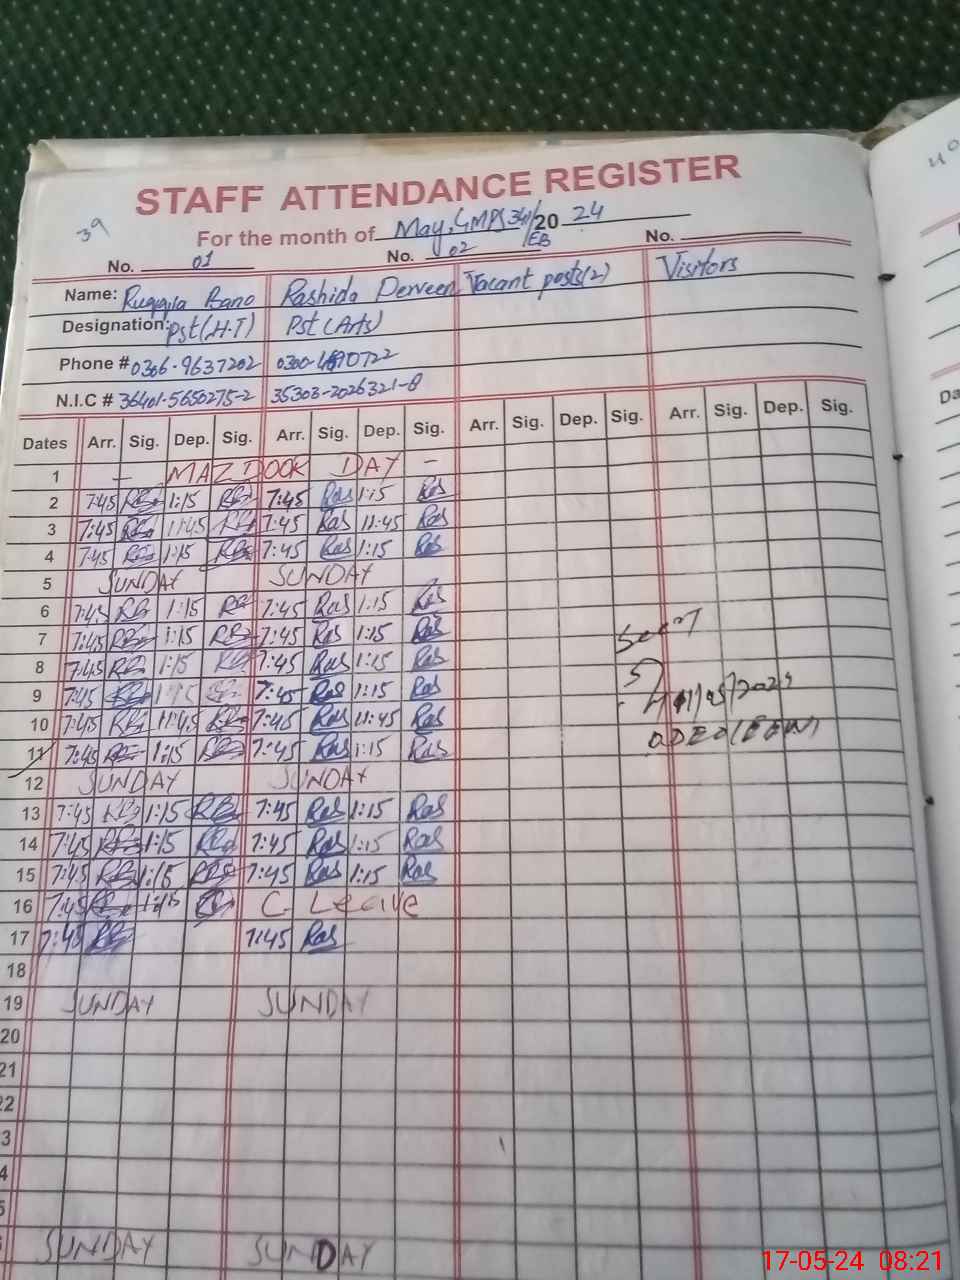 STAFF ATTENDANCE REGISTER
39
For the month of May, GMPS 34/EB 2024
No. 01 No. 02 No.
Name: Ruqqia Bano Rashida Perveen Vacant posts(2) Visitors
Designation: Pst(H.T) Pst(Arts)
Phone # 0306-9637202
N.I.C # 36401-5650275-2 35303-2026321-8
Dates Arr. Sig. Dep. Sig. Arr. Sig. Dep. Sig. Arr. Sig. Dep. Sig. Arr. Sig. Dep. Sig.
1 — MAZDOOR DAY —
2 7:45 RB 1:15 RB 7:45 Ras 1:15 Ras
3 7:45 RB 11:45 RB 7:45 Ras 11:45 Ras
4 7:45 RB 1:15 RB 7:45 Ras 1:15 Ras
5 SUNDAY SUNDAY
6 7:45 RB 1:15 RB 7:45 Ras 1:15 Ras
7 7:45 RB 1:15 RB 7:45 Ras 1:15 Ras
8 7:45 RB 1:15 RB 7:45 Ras 1:15 Ras
Seen
9 7:45 RB 1:15 RB 7:45 Ras 1:15 Ras
10 7:45 RB 11:45 RB 7:45 Ras 11:45 Ras
11 7:45 RB 1:15 RB 7:45 Ras 1:15 Ras
12 SUNDAY SUNDAY
13 7:45 RB 1:15 RB 7:45 Ras 1:15 Ras
14 7:45 RB 1:15 RB 7:45 Ras 1:15 Ras
15 7:45 RB 1:15 RB 7:45 Ras 1:15 Ras
16 7:45 RB 1:15 RB C Leave
17 7:45 RB 7:45 Ras
18
19 SUNDAY SUNDAY
20
21
22
3
4
5
SUNDAY SUNDAY
17-05-24 08:21